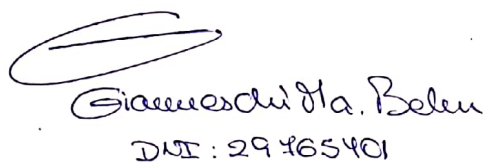 Gianneschi Ma. Belen
DNI: 29765401